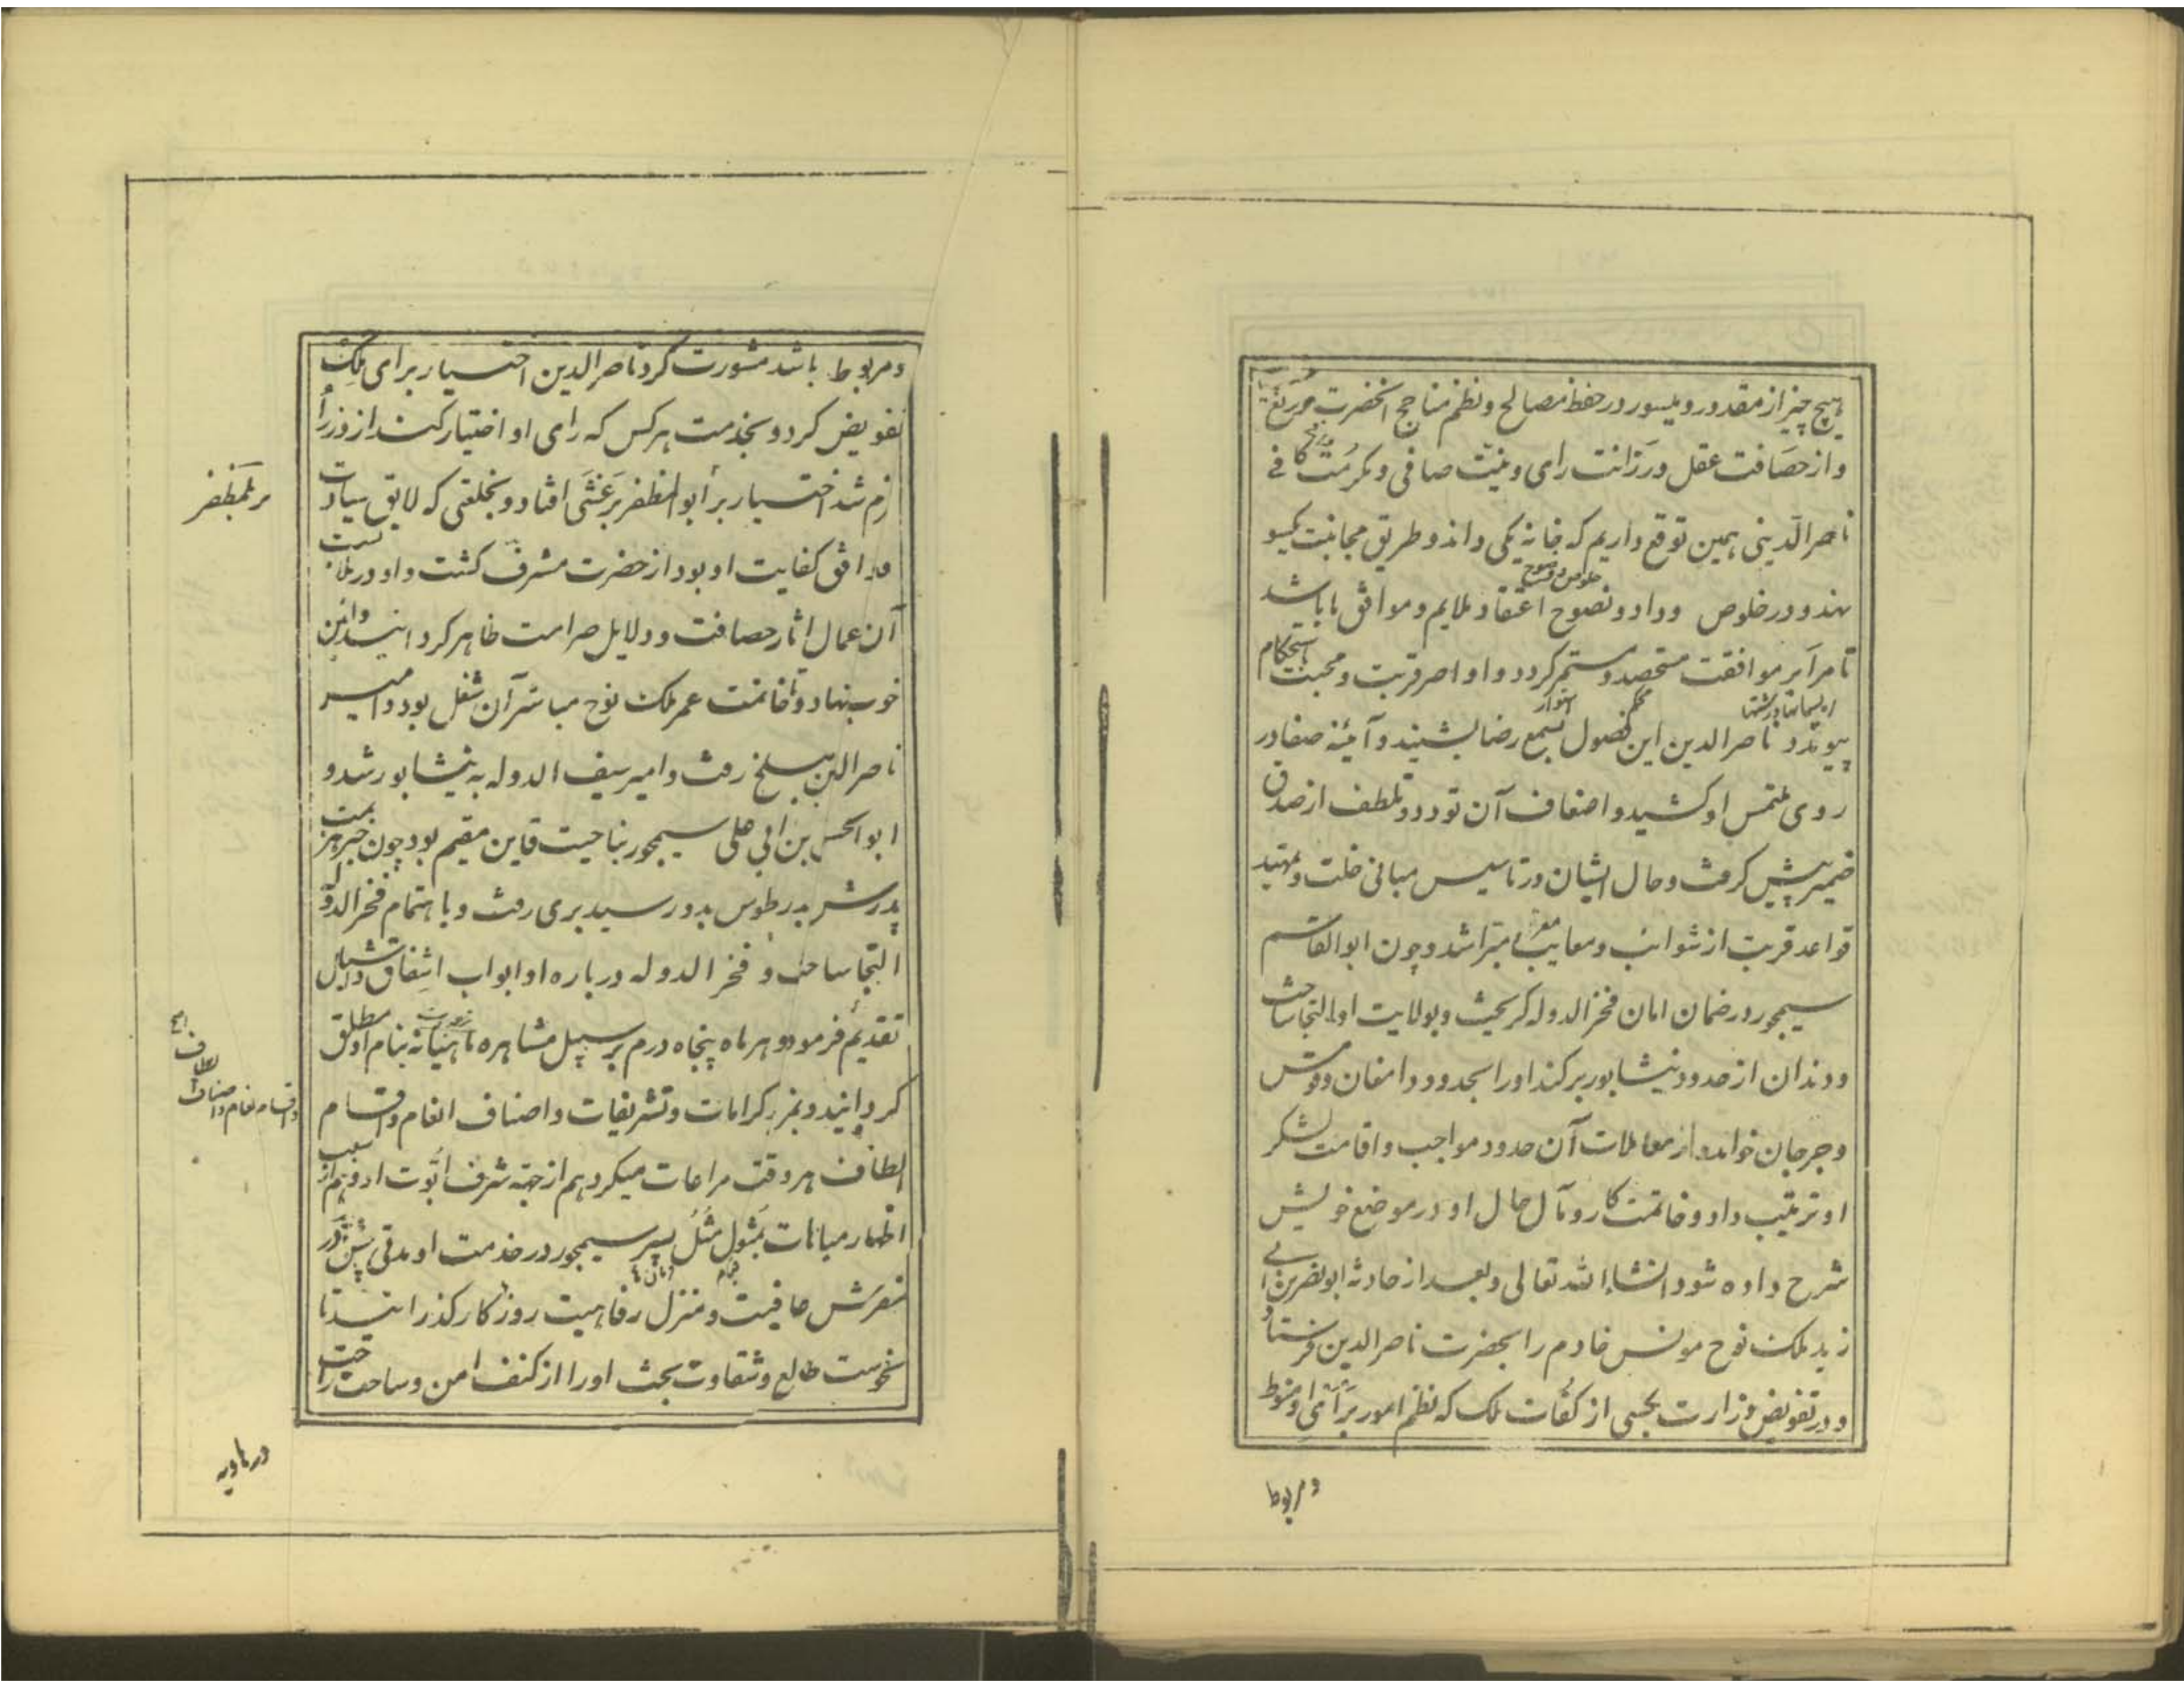 هیچ چیز از مقدور و میسور در حفظ مصالح و نظم مناجح آنحضرت
و از حصافت عقل و رزانت رای و نیت صافی و مکرمت کافی
ناصرالدینی همین توقع داریم که خانه یکی داند و طریق مجانبت یکسو
نهد و در خلوص وداد و نصوح اعتقاد ملایم و موافق ما باشد
تا مرایر موافقت مستحصد و مستمر گردد و اواصر قربت و محبت استحکام
ریسمانها و رشتها
محکم
استوار
پیوندد ناصرالدین این فصول بسمع رضا بشنید و آئینه صفا در
روی ملتمس او کشید و اضعاف آن تودد و تلطف از صدق
ضمیر پیش گرفت و حال ایشان در تاسیس مبانی خلت و تمهید
قواعد قربت از شوائب و معایب مبرا شد و چون ابوالقاسم
سیمجور در ضمان امان فخرالدوله گریخت و بولایت او التجا ساخت
و دندان از حدود نیشابور برکند او را بحدود دامغان و قومس
و جرجان خواند و از معاملات آن حدود مواجب و اقامت لشکر
او ترتیب داد و خاتمت کار و مآل حال او در موضع خویش
شرح داده شود انشاء الله تعالی و بعد از حادثه ابونصر بن ابی
زید ملک نوح مونس خادم را بحضرت ناصرالدین فرستاد
و در تفویض وزارت بکسی از کفات ملک که نظم امور برای او منوط
و مربوط
و مربوط باشد مشورت کرد ناصرالدین اختیار برای ملک
تفویض کرد و بخدمت هرکس که رای او اختیار کند از وزرا
زم شد اختیار بر ابوالمظفر برغشی افتاد و بخلعتی که لایق سیادت
بر المظفر
و موافق کفایت او بود از حضرت مشرف گشت و او در ملابست
آن عمال آثار حصافت و دلایل صرامت ظاهر کرد
خوب بنهاد و تا خاتمت عمر ملک نوح مباشر آن شغل بود و امیر
ناصرالدین ببلخ رفت و امیر سیف الدوله به نیشابور شد و
ابوالحسن بن ابی علی سیمجور بناحیت قاین مقیم بود چون خبر هزیمت
پدرش بدر طوس بدو رسید بری رفت و باهتمام فخرالدوله
التجا ساخت و فخرالدوله درباره او ابواب اشفاق و اشبال
تقدیم فرمود و هر ماه پنجاه درم بر سبیل مشاهره ماهیانه بنام او مطلق
گردانید و بمزید کرامات و تشریفات و اصناف انعام و اقسام
الطاف هر وقت مراعات میکرد هم از جهة شرف ابوت او و هم از سبب
اظهار مباهات بمثول مثل پسر سیمجور در خدمت او مدتی
مفرش عافیت و منزل رفاهیت روزگار گذرانید تا
نحوست طالع و شقاوت بخت او را از کنف امن و ساحت راحت
در هاویه